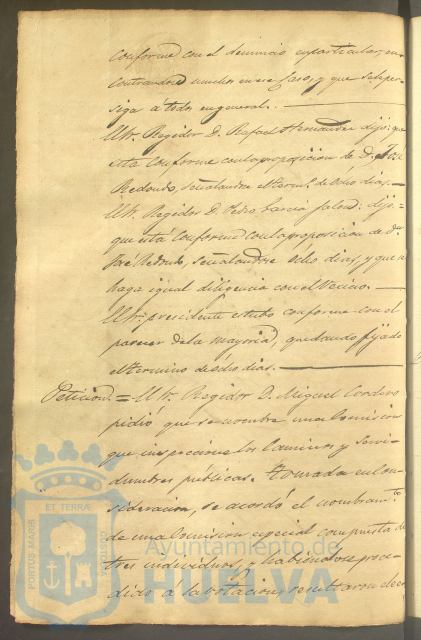 conforme con el denuncio en particular, en-
contrandose muchos en ese caso, y que se le per-
siga á todos en general.
El Sr. Regidor D. Rafael Hernandez dijo: que
está conforme con la proposicion de D. José
Redondo, señalandose el term.º de ocho dias.
El Sr. Regidor D. Pedro Garcia dijo=
que está conforme con la proposicion de Dn.
José Redondo, señalandose ocho dias, y que se
haga igual diligencia con el Vecino.
El Sr. presidente estubo conforme con el
parecer de la mayoria, quedando fijado
el termino de ocho dias.
Peticion. = El Sr. Regidor D. Miguel Cordero
pidió que se nombre una Comision
que inspeccione los Caminos y Servi-
dumbres públicas. Tomada en con-
sideracion, se acordó el nombram.to
de una Comision especial compuesta de
tres individuos, y habiendose proce-
dido á la votacion, resultaron elec-
PORTUS MARIS ET TERRÆ CUSTODIA
Ayuntamiento de
HUELVA